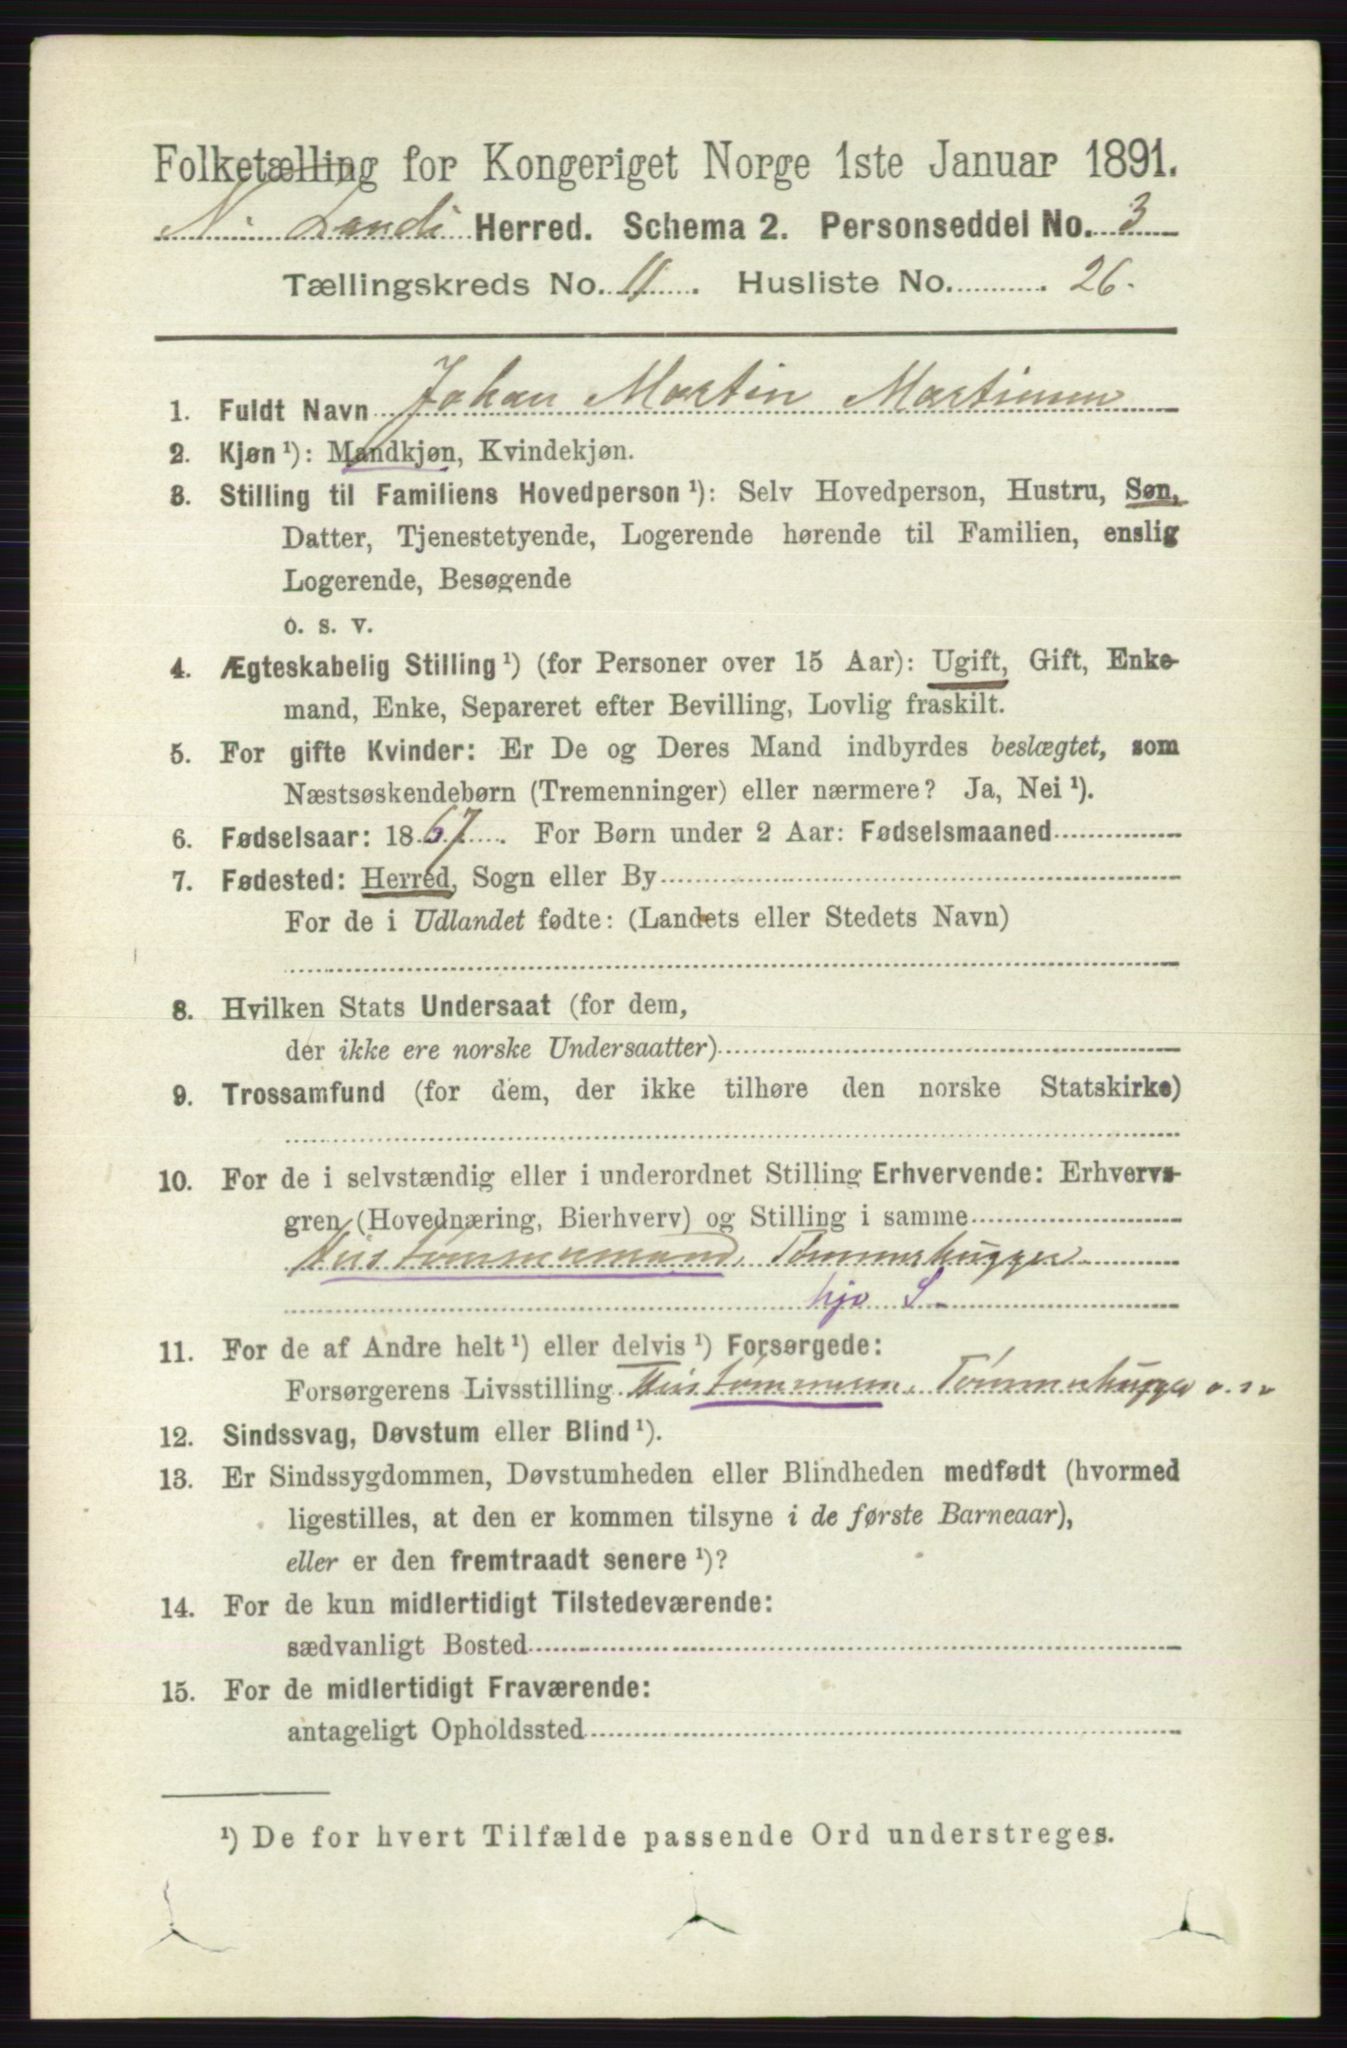 Folketælling for Kongeriget Norge 1ste Januar 1891.
N. Lands Herred. Schema 2. Personseddel No. 3
Tællingskreds No. 11. Husliste No. 26.
1. Fuldt Navn Johan Martin Martinsen
2. Kjøn ¹): Mandkjøn, Kvindekjøn.
3. Stilling til Familiens Hovedperson ¹): Selv Hovedperson, Hustru, Søn,
Datter, Tjenestetyende, Logerende hørende til Familien, enslig
Logerende, Besøgende
o. s. v.
4. Ægteskabelig Stilling ¹) (for Personer over 15 Aar): Ugift, Gift, Enke-
mand, Enke, Separeret efter Bevilling, Lovlig fraskilt.
5. For gifte Kvinder: Er De og Deres Mand indbyrdes beslægtet, som
Næstsøskendebørn (Tremenninger) eller nærmere? Ja, Nei ¹).
6. Fødselsaar: 1867. For Børn under 2 Aar: Fødselsmaaned
7. Fødested: Herred, Sogn eller By
For de i Udlandet fødte: (Landets eller Stedets Navn)
8. Hvilken Stats Undersaat (for dem,
der ikke ere norske Undersaatter)
9. Trossamfund (for dem, der ikke tilhøre den norske Statskirke)
10. For de i selvstændig eller i underordnet Stilling Erhvervende: Erhvervs-
gren (Hovednæring, Bierhverv) og Stilling i samme
Hustømmermand, Tømmerhugger
hjo S
11. For de af Andre helt ¹) eller delvis ¹) Forsørgede:
Forsørgerens Livsstilling Hustømmerm. Tømmerhugger
12. Sindssvag, Døvstum eller Blind ¹).
13. Er Sindssygdommen, Døvstumheden eller Blindheden medfødt (hvormed
ligestilles, at den er kommen tilsyne i de første Barneaar),
eller er den fremtraadt senere ¹)?
14. For de kun midlertidigt Tilstedeværende:
sædvanligt Bosted
15. For de midlertidigt Fraværende:
antageligt Opholdssted
¹) De for hvert Tilfælde passende Ord understreges.